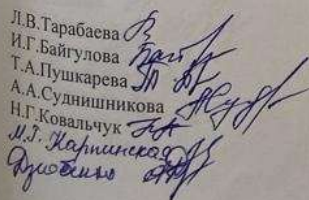 Л.В.Тарабаева
И.Г.Байгулова
Т.А.Пушкарева
А.А.Суднишникова
Н.Г.Ковальчук
М.Г. Карпинская